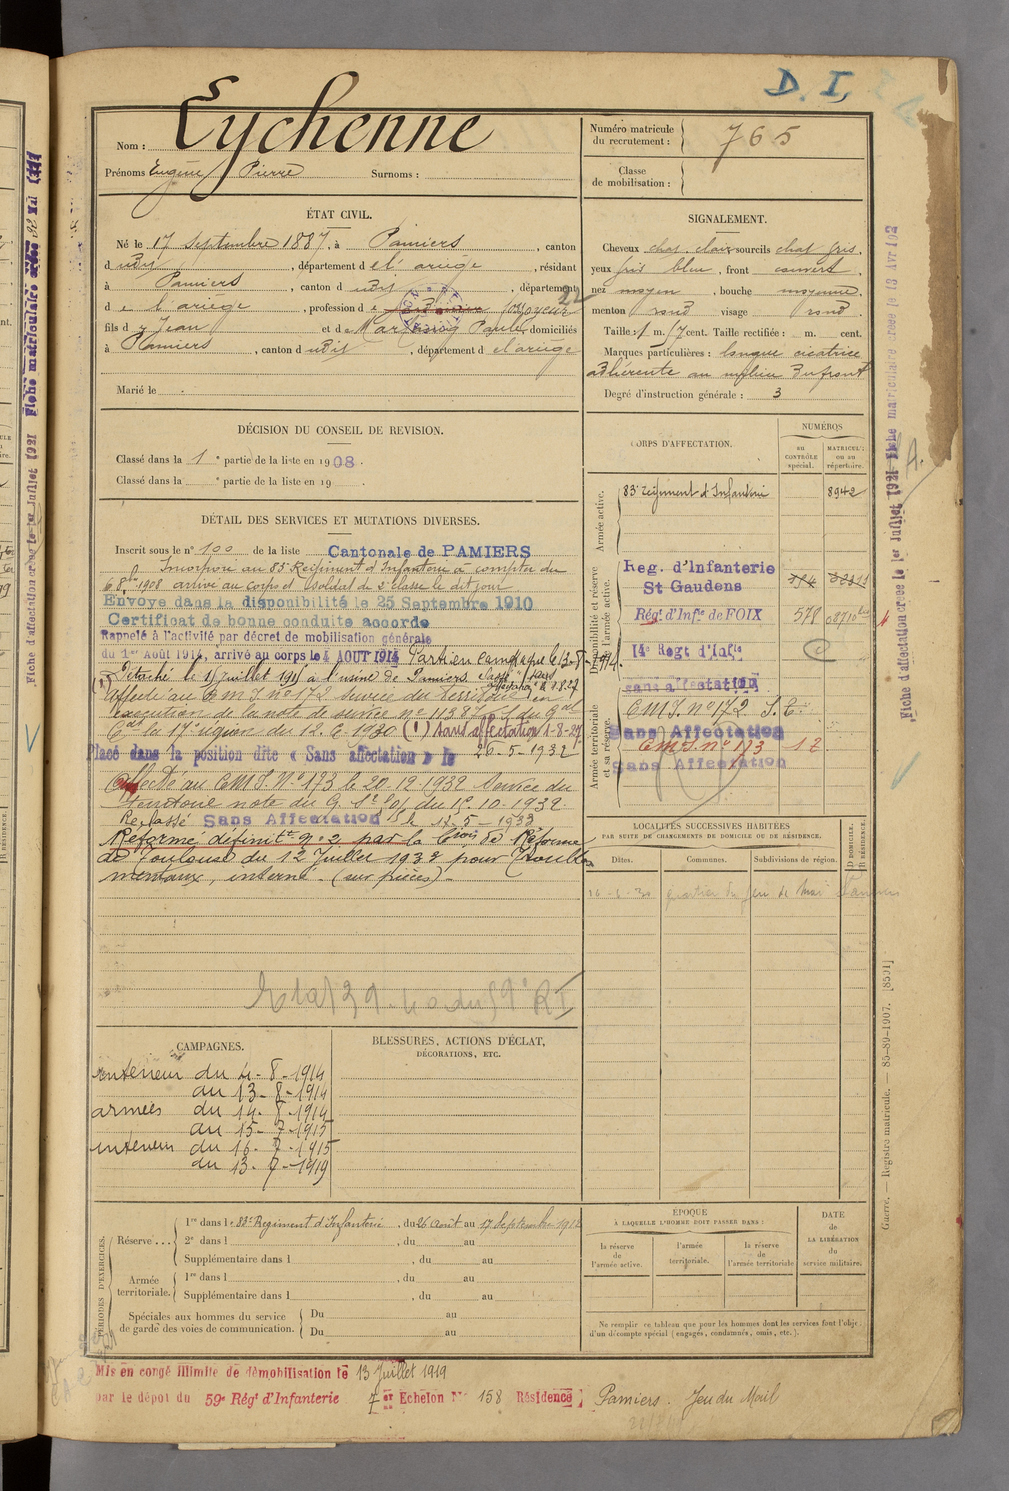 D. I.
Nom : Eychenne
Prénoms Eugène Pierre Surnoms :
Numéro matricule du recrutement : 765
Classe de mobilisation :
ÉTAT CIVIL.
Né le 17 Septembre 1887, à Pamiers, canton
dudit, département de l'ariège, résidant
à Pamiers, canton dudit, département
de l'ariège, profession de
fils de Jean et de Paule, domiciliés
à Pamiers, canton dudit, département de l'ariège
Marié le
SIGNALEMENT.
Cheveux chat. clair sourcils chat gris,
yeux gris bleu, front couvert,
nez moyen, bouche moyenne,
menton rond visage rond.
Taille : 1 m. 7 cent. Taille rectifiée : m. cent.
Marques particulières : longue cicatrice
adhérente au milieu du front
Degré d'instruction générale : 3
DÉCISION DU CONSEIL DE REVISION.
Classé dans la 1e partie de la liste en 1908.
Classé dans la e partie de la liste en 19 .
DÉTAIL DES SERVICES ET MUTATIONS DIVERSES.
Inscrit sous le n° 100 de la liste Cantonale de PAMIERS
Incorporé au 83e Régiment d'Infanterie à compter du
8 1908 arrivé au corps et soldat de 2e classe le dit jour
Envoyé dans la disponibilité le 25 Septembre 1910
Certificat de bonne conduite accordé
Rappelé à l'activité par décret de mobilisation générale
du 1er Août 1914, arrivé au corps le 4 AOUT 1914 Parti en campagne le 13-8-1914.
Détaché le 15 juillet 1915 à l'usine de Pamiers.
Affecté au C M I n° 172 service du territoire en
exécution de la note de service n° 11387 du Gal
Cdt la 17e région du 12.6.1930 (1) sans affectation 1-8-27
Placé dans la position dite « Sans affectation » le 26-5-1932
Affecté au C M I N° 173 le 20-12-1932 Service du
territoire note du 10-10-1932.
Reclassé Sans Affectation le 17-5-1933
Réformé définitt n° 2 par la Cion de Réforme
de Toulouse du 12 Juillet 1933 pour troubles
mentaux, interné (sur pièces).
CORPS D'AFFECTATION.
NUMÉROS
au CONTRÔLE spécial.
MATRICULE ou au répertoire.
Armée active.
83e régiment d'Infanterie 8942
Disponibilité et réserve de l'armée active.
Reg. d'Infanterie
St Gaudens
Régt d'Infie de FOIX 578
14e Regt d'Infie
sans affectation
Armée territoriale et sa réserve.
C M I. n° 172 S. C.
Sans Affectation
C M I. n° 173 12
Sans Affectation
LOCALITÉS SUCCESSIVES HABITÉES
PAR SUITE DE CHANGEMENTS DE DOMICILE OU DE RÉSIDENCE.
Dates. Communes. Subdivisions de région. D DOMICILE. R RÉSIDENCE.
quartier du Jeu de Mail Pamiers
CAMPAGNES.
intérieur du 4-8-1914
au 13-8-1914
armées du 14-8-1914
au 15-7-1915
intérieur du 16-7-1915
au 13-7-1919
BLESSURES, ACTIONS D'ÉCLAT,
DÉCORATIONS, ETC.
PÉRIODES D'EXERCICES.
Réserve... 1re dans le 83e Régiment d'Infanterie, du 26 Août au 17 Septembre 1912
2e dans l , du au
Supplémentaire dans l , du au
Armée territoriale. 1re dans l , du au
Supplémentaire dans l , du au
Spéciales aux hommes du service de garde des voies de communication. Du au
Du au
ÉPOQUE
À LAQUELLE L'HOMME DOIT PASSER DANS :
la réserve de l'armée active.
l'armée territoriale.
la réserve de l'armée territoriale
DATE de LA LIBÉRATION du service militaire.
Ne remplir ce tableau que pour les hommes dont les services font l'objet
d'un décompte spécial (engagés, condamnés, omis, etc.).
Mis en congé illimité de démobilisation le 13 Juillet 1919
par le dépôt du 59e Régt d'Infanterie 7e Echelon N° 158 Résidence Pamiers. Jeu du Mail
Guerre. — Registre matricule. — 85-89-1907. [8501]
Fiche d'affectation créée le 1er Juillet 1921
Fiche matriculaire créée le 18 Avr
Fiche d'affectation créée le 1er Juillet 1921 Fiche matriculaire créée